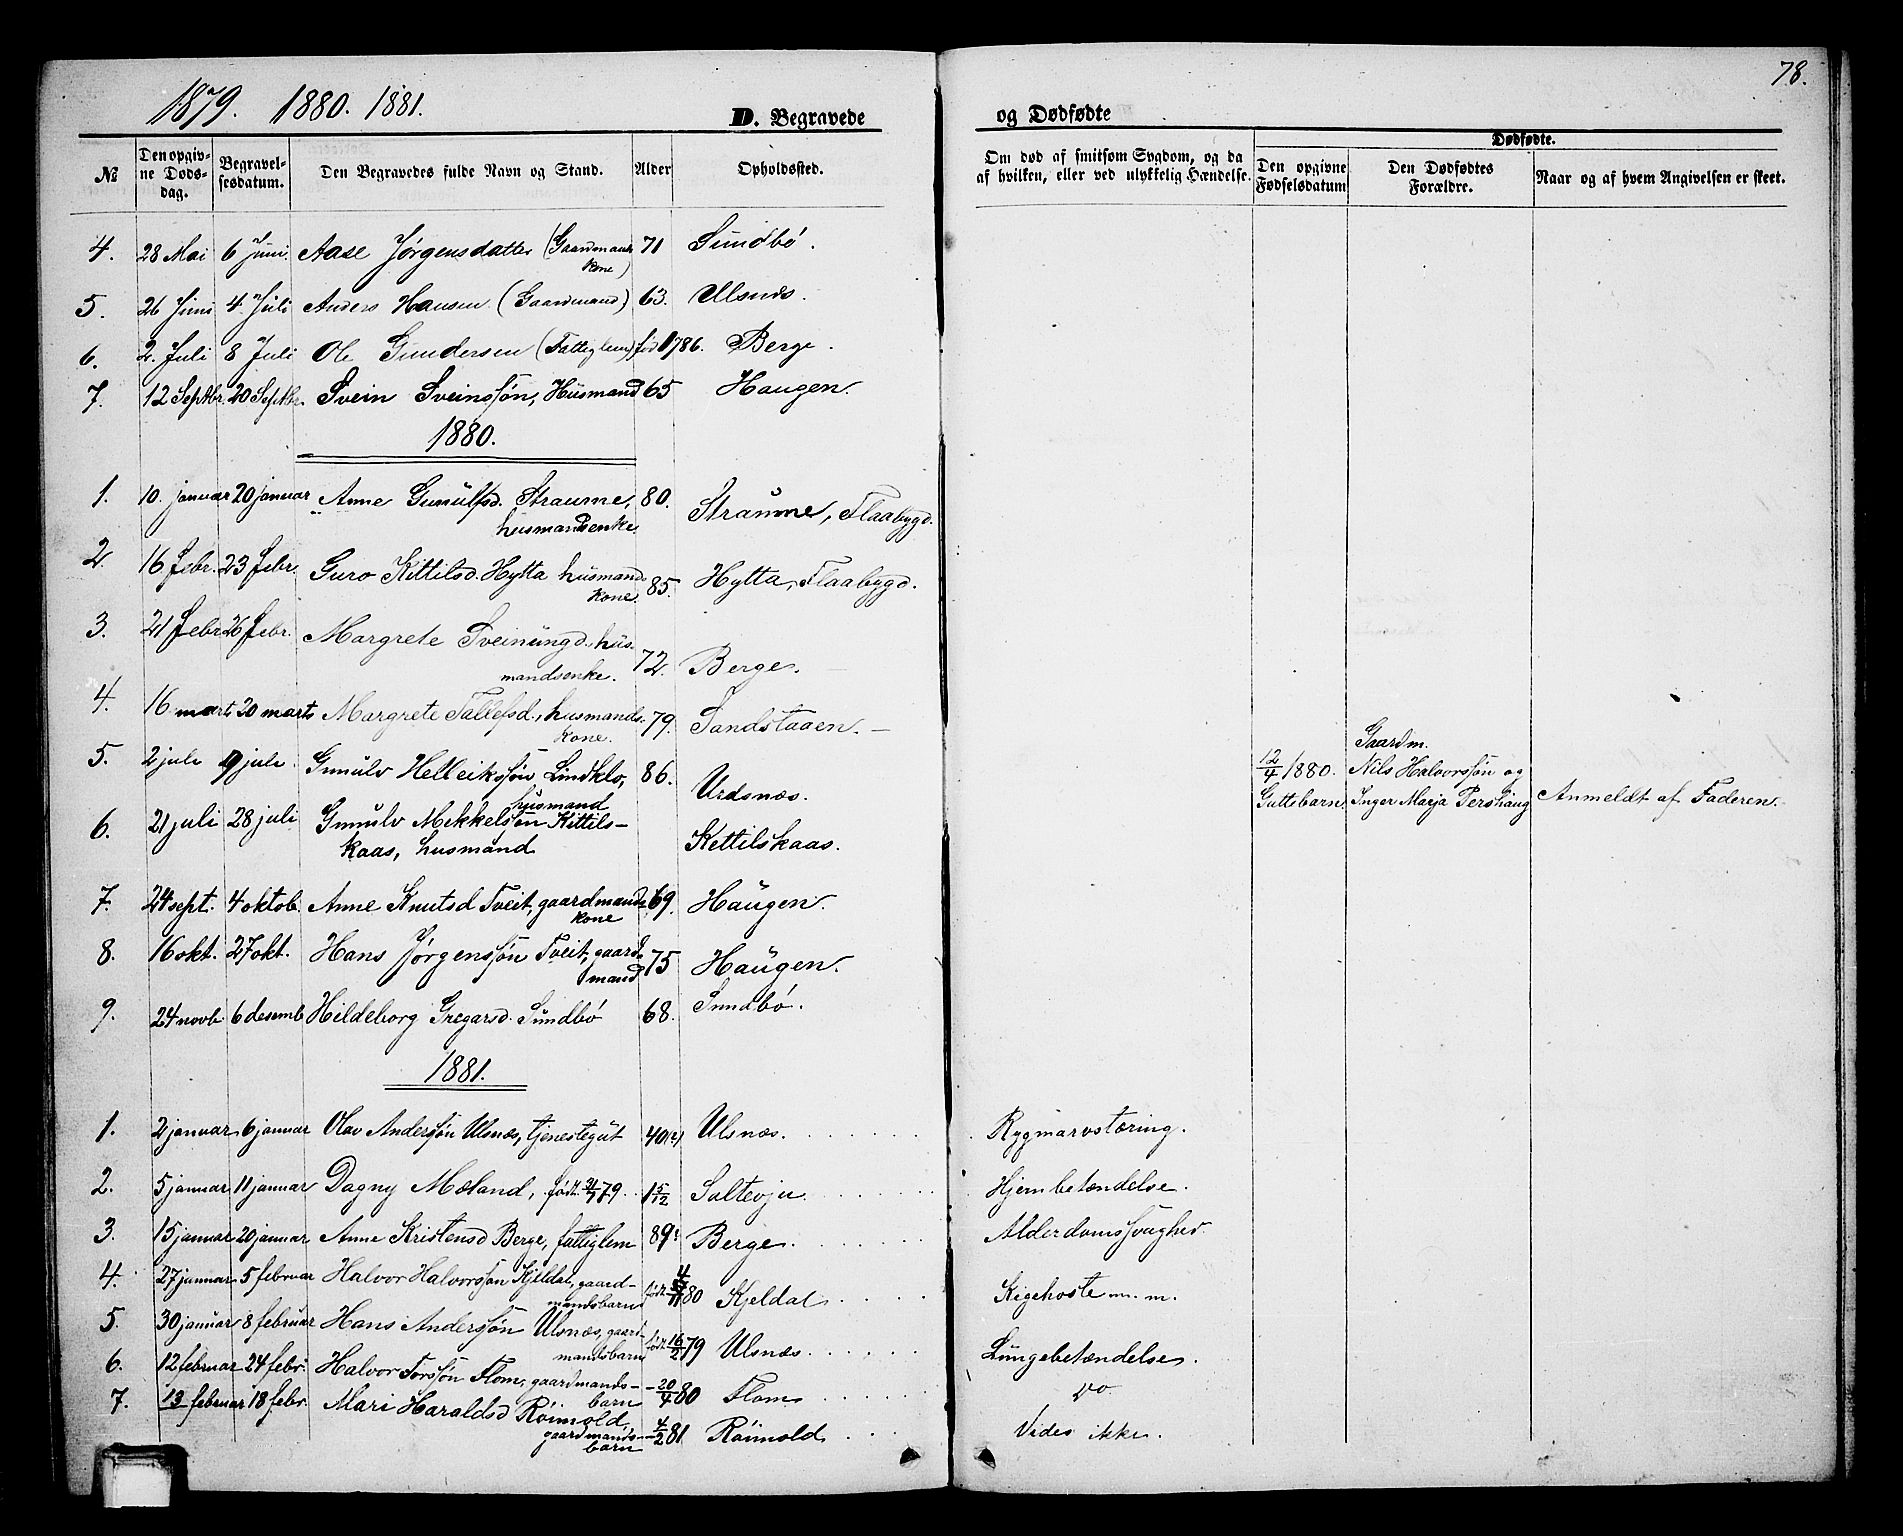 78.
1879. 1880. 1881.
D. Begravede og Dødfødte
Dødfødte.
№ Den opgivne Dødsdag. Begravelsesdatum. Den Begravedes fulde Navn og Stand. Alder Opholdssted. Om død af smitsom Sygdom, og da af hvilken, eller ved ulykkelig Hændelse. Den opgivne Fødselsdatum Den Dødfødtes Forældre. Naar og af hvem Angivelsen er skeet.
4. 28 Mai 6 Juni Aase Jørgensdatter (Gaardmands 71 Sundbø.
kone)
5. 26 Juni 4 Juli Anders Hansen (Gaardmand) 63. Ulsnæs.
6. 2. Juli 8 Juli Ole Gundersen (Fattiglem) fød 1786. Berge.
7. 12 Septbr. 20 Septbr. Svein Sveinssøn, Husmand 65 Haugen.
1880.
1. 10. januar 20 januar Anne Gunulfsd. Straume, 80. Straume, Flaabygd.
husmandsenke
2 16 febr. 23 febr. Guro Kittilsd. Hytta husmands 85. Hytta, Flaabygd.
kone.
3. 21 febr 26 febr. Margrete Sveinungd. hus-
mandsenke. 72. Berge.
4. 16 mart 20 marts Margrete Tallefsd., husmands 79. Sandstaaen.
kone.
5. 2 juli 9 juli Gunulv Helleikssøn Lindklo, 86. Urdsnæs.
husmand
12/4 1880. Gaardm.
Nils Halvorssøn og
Guttebarn. Inger Marja Pershaug Anmeldt af Faderen.
6. 21 juli 28 juli Gunulv Mikkelsøn Kittils-
kaas, husmand Kettilskaas.
7. 24 sept. 4 oktob. Anne Knutsd Tveit, gaardmands 69. Haugen.
kone
8. 16 okt. 27 okt. Hans Jørgenssøn Tveit, gaard-
mand 75 Haugen.
9. 24 novb 6 desemb Hildeborg Gregarsd. Sundbø 68. Sundbø.
1881.
1. 2 januar 6 januar Olav Anderssøn Ulsnæs, tjenestegut 40(?) Ulsnæs. Rygmarvstæring.
2. 5 januar 11 januar Dagny Mæland, født 79. 1 5/12 Saltevju Hjernbetændelse.
3. 15 januar 20 januar Anne Kristensd Berge, fattiglem 89? Berge. Alderdomssvaghed.
4. 27 januar 5 februar Halvor Halvorssøn Kjeldal, gaard-
mandsbarn født 80 Kjeldal Kigehoste m. m.
5. 30 januar 8 februar Hans Anderssøn Ulsnæs, gaard-
mandsbarn født 16/2 79 Ulsnæs. Lungebetændelse.
6. 12 februar 24 febr. Halvor Torssøn Flom, gaardmands-
barn - 20/4 80 Flom do
7. 13 februar 18 febr. Mari Haraldsd Röimold,
gaardmands-
barn 4/2 81 Röimold Vides ikke.